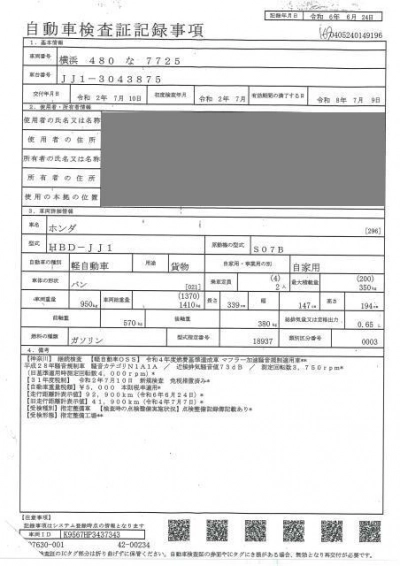 自動車検査証記録事項
記録年月日 令和 6年 6月 24日
0405240149196
1. 基本情報
車両番号 横浜 480 な 7725
車台番号 JJ1-3043875
交付年月日 令和 2年 7月 10日 初度検査年月 令和 2年 7月 有効期間の満了する日 令和 8年 7月 9日
2. 使用者・所有者情報
使用者の氏名又は名称
使用者の住所
所有者の氏名又は名称
所有者の住所
使用の本拠の位置
3. 車両詳細情報
車名 ホンダ [296]
型式 HBD-JJ1 原動機の型式 S07B
自動車の種別 軽自動車 用途 貨物 自家用・事業用の別 自家用
車体の形状 バン [021] 乗車定員 (4) 2人 最大積載量 (200) 350kg
車両重量 950kg 車両総重量 (1370) 1410kg 長さ 339cm 幅 147cm 高さ 194cm
前軸重 570kg 後軸重 380kg 総排気量又は定格出力 0.65L
燃料の種類 ガソリン 型式指定番号 18937 類別区分番号 0003
4. 備考
【神奈川】 継続検査 【軽自動車OSS】 令和4年度燃費基準達成車 マフラー加速騒音規制適用車**
平成28年騒音規制車 騒音カテゴリN1A1A / 近接排気騒音値73dB / 測定回転数3,750rpm*
(旧基準適用時測定回転数4,000rpm)*
【31年度税制】 令和2年7月10日 新規検査 免税措置済み*
【自動車重量税額】¥5,000 本則税率適用*
【走行距離計表示値】92,900km(令和6年6月24日)*
【旧走行距離計表示値】41,900km(令和4年7月7日)*
【受検種別】指定整備車 【検査時の点検整備実施状況】点検整備記録簿記載あり*
【受検形態】指定整備工場**
【注意事項】
記録事項はシステム登録時点の情報となります
車両ID K9567HP3437343
07630-001 42-00234